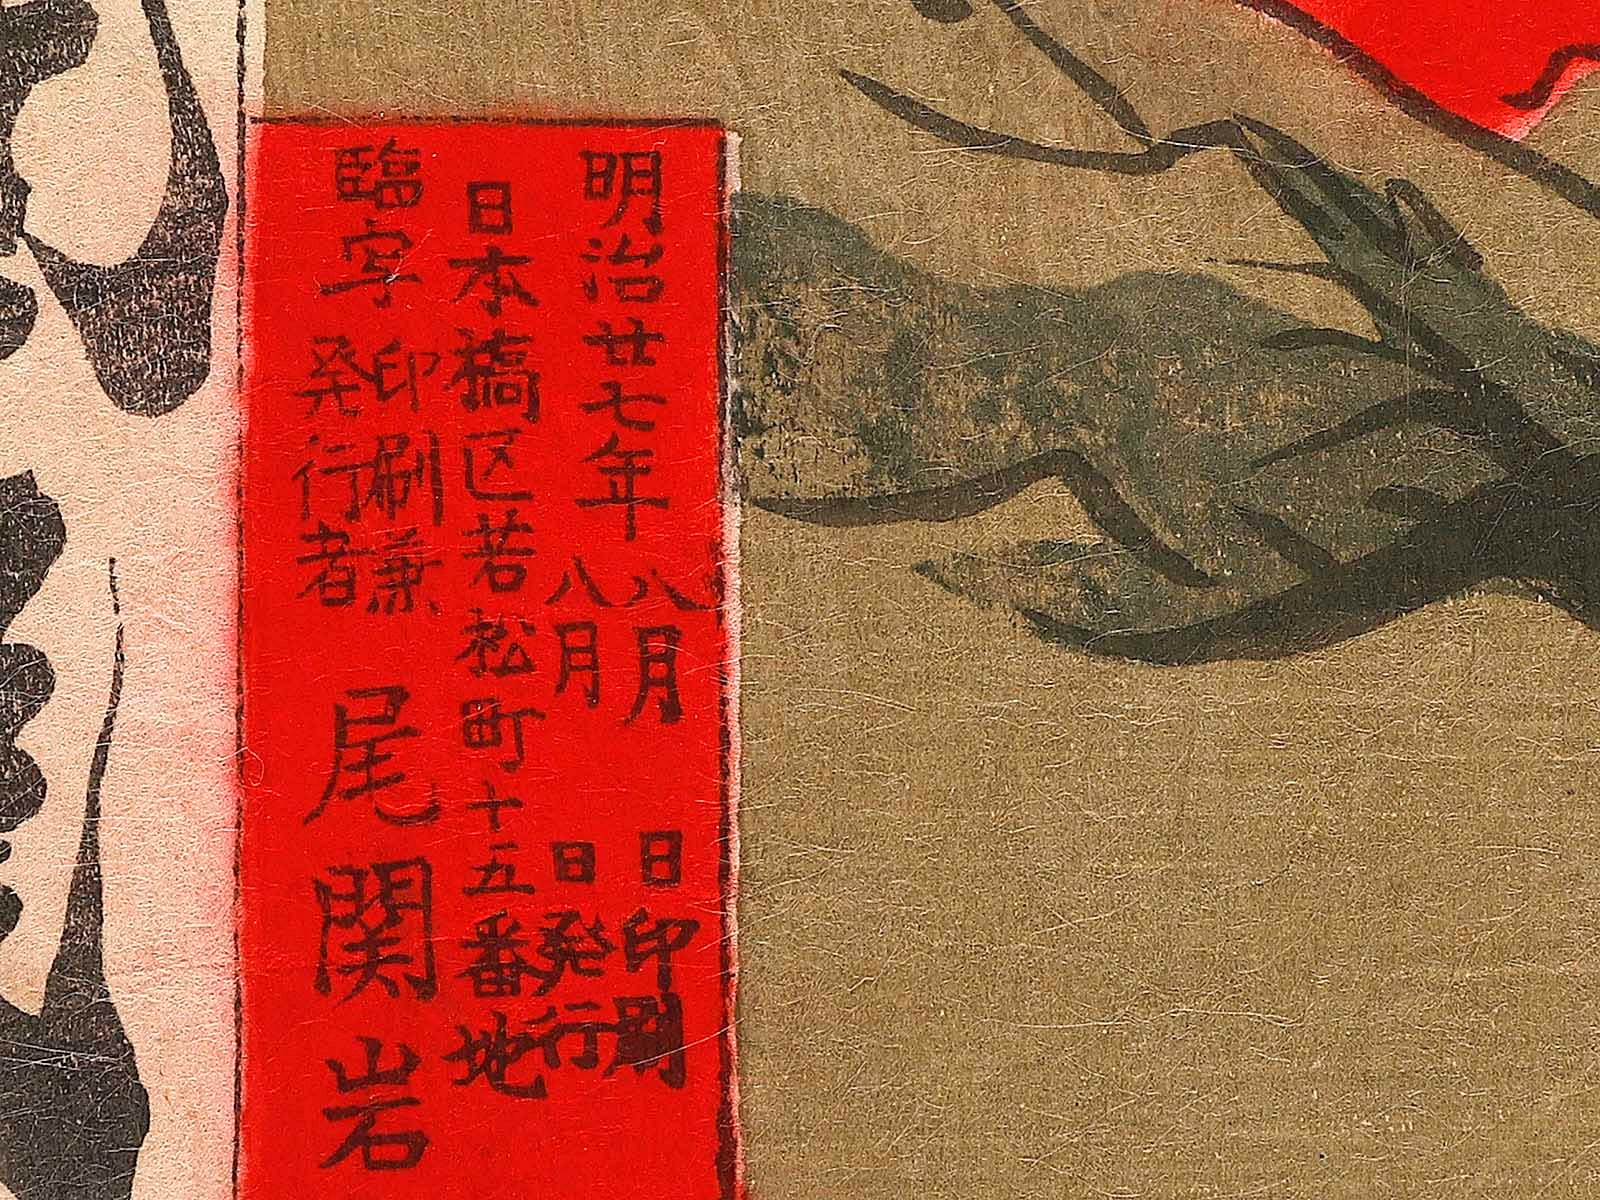 明治廿七年八月 日印刷
八月 日発行
日本橋区若松町十五番地
臨写印刷兼
発行者
尾関岩